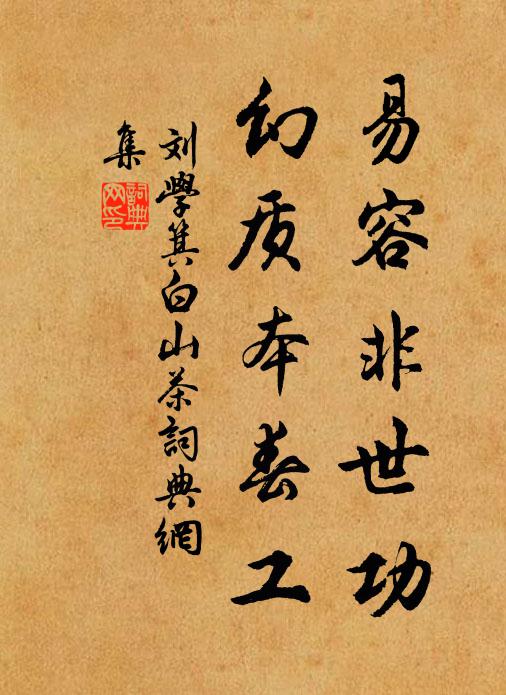 易容非世功
幻质本春工
刘學箕白山茶詞典網
集
詞典網印